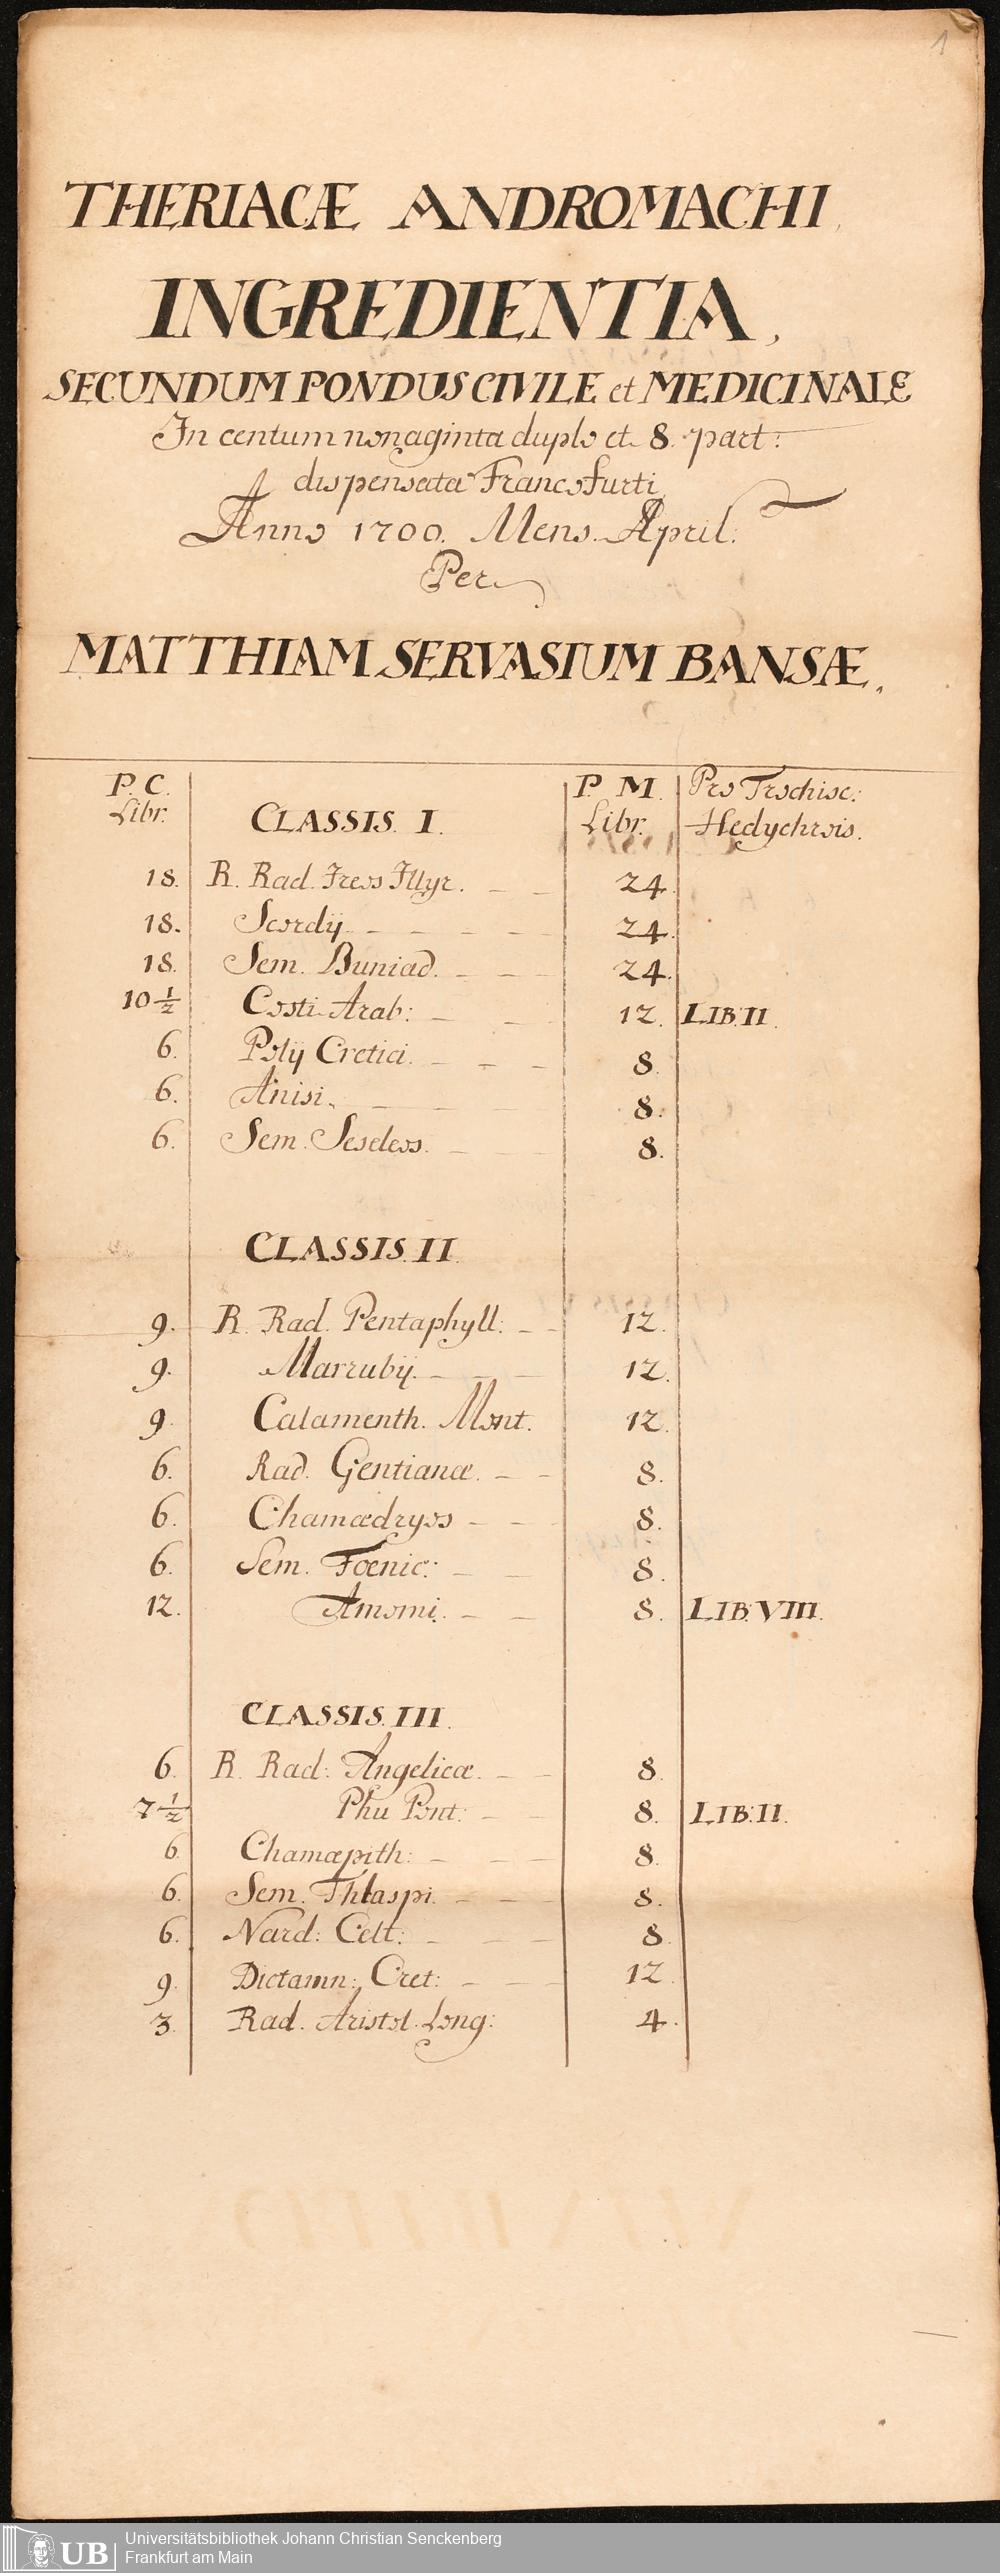 1
THERIACÆ ANDROMACHI,
INGREDIENTIA,
SECUNDUM PONDUS CIVILE et MEDICINALE
In centum nonaginta duplo et 8. part:
dispensata Francofurti
Anno 1700. Mens. April:
Per
MATTHIAM SERVASIUM BANSÆ.
P. C. P. M. Pro Trochisc:
Libr. CLASSIS. I. Libr. Hedychrois.
18. R. Rad. Ireos Illyr. — — 24.
18. Scordij — — — — 24.
18. Sem. Buniad. — — — 24.
10 1/2 Costi Arab: — — 12. LIB: II.
6. Polij Cretici. — — — 8.
6. Anisi. — — — — 8.
6. Sem. Seseleos. — — — 8.
CLASSIS. II.
9. R. Rad. Pentaphyll: — — 12.
9. Marrubij. — — — 12.
9. Calamenth. Mont. 12.
6. Rad. Gentianæ. — — 8.
6. Chamædryos — — — 8.
6. Sem. Fœnic: — — 8.
12. Amomi. — — 8. LIB: VIII.
CLASSIS. III.
6. R. Rad: Angelicæ. — — 8.
7 1/2 Phu Pont: — — 8. LIB: II.
6. Chamæpith: — — — 8.
6. Sem. Thlaspi. — — — 8.
6. Nard: Celt: — — — 8.
9. Dictamn: Cret: — — — 12.
3. Rad. Aristol. Long: 4.
UB Universitätsbibliothek Johann Christian Senckenberg
Frankfurt am Main